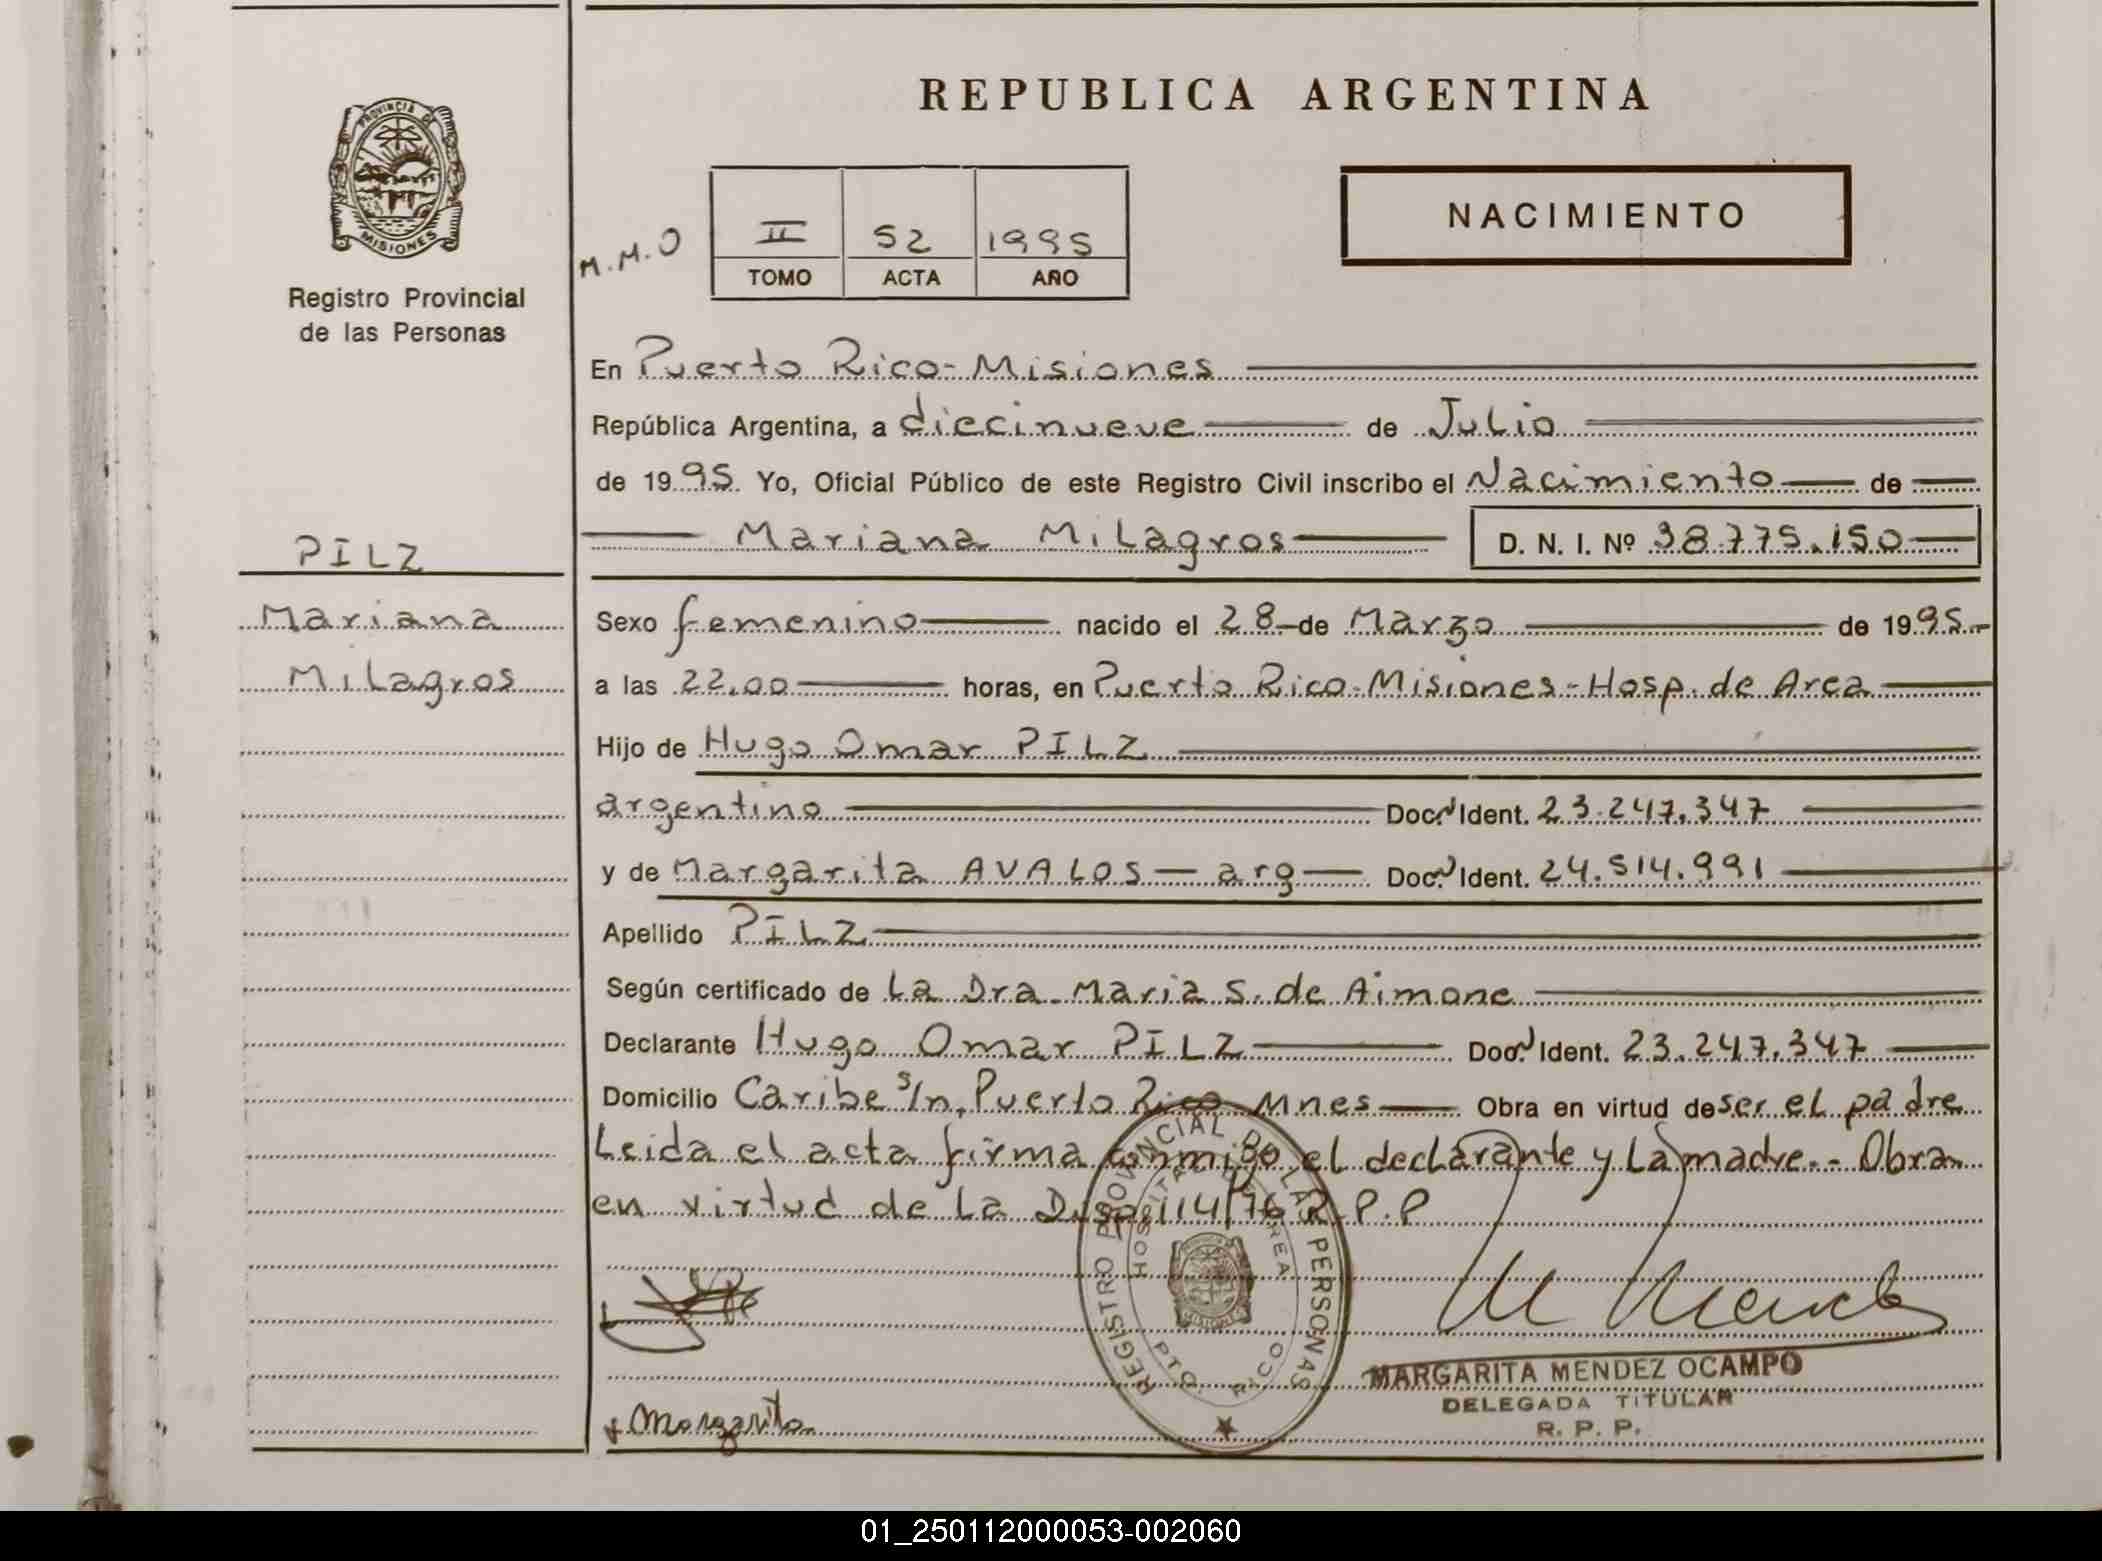 REPUBLICA ARGENTINA
PROVINCIA DE
MISIONES
Registro Provincial
de las Personas
M.M.O
II 52 1995
TOMO ACTA AÑO
NACIMIENTO
En Puerto Rico - Misiones
República Argentina, a diecinueve de Julio
de 1995. Yo, Oficial Público de este Registro Civil inscribo el Nacimiento de
Mariana Milagros D. N. I. Nº 38.775.150
PILZ
Mariana
Milagros
Sexo femenino nacido el 28 de Marzo de 1995.-
a las 22.00 horas, en Puerto Rico-Misiones-Hosp. de Area
Hijo de Hugo Omar PILZ
argentino Doc. Ident. 23.247.347
y de Margarita AVALOS — arg — Doc. Ident. 24.514.991
Apellido PILZ
Según certificado de La Dra. Maria S. de Aimone
Declarante Hugo Omar PILZ Doc. Ident. 23.247.347
Domicilio Caribe s/n. Puerto Rico Mnes Obra en virtud de ser el padre
Leida el acta firma conmigo el declarante y La madre.- Obra
en virtud de La Disp. 114/76 R.P.P
REGISTRO PROVINCIAL DE LAS PERSONAS
HOSPITAL DE AREA
PTO. RICO
MISIONES
MARGARITA MENDEZ OCAMPO
DELEGADA TITULAR
R. P. P.
Margarita
01_250112000053-002060